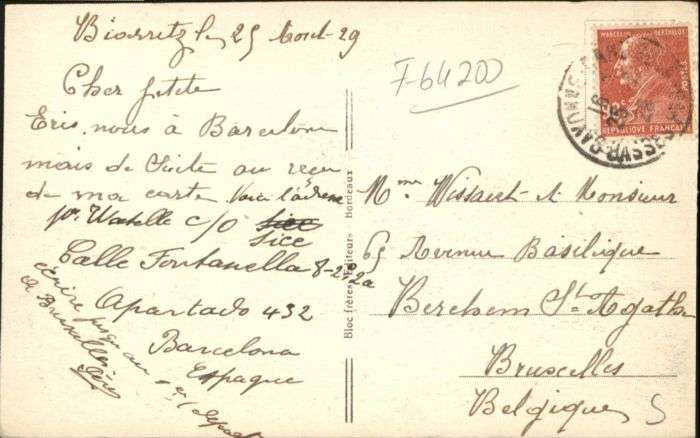 Biarritz le 25 Aout 29
Cher petite
Ecris nous à Barcelone
mais de suite au reçu
de ma carte Voici l'adresse
pr. Watelle c/o sice
sice
Calle Fontanella 8-2º-2a
Apartado 432
Barcelona
Espagne
écrire jusqu'au 1er
à Bruxelles
F-64200
Bloc frères Editeurs Bordeaux
MARCELIN BERTHELOT
POSTES
REPUBLIQUE FRANÇAISE
Mme Wissaert et Monsieur
65 Avenue Basilique
Berchem Ste Agathe
Bruxelles
Belgique
5